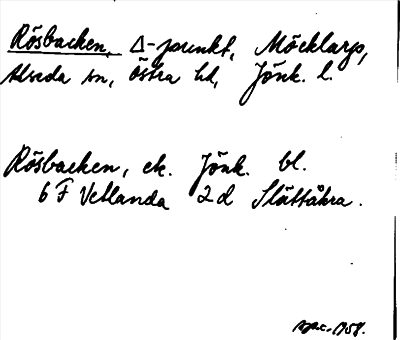 Rösbacken, Δ-punkt, Möcklarp,
Alseda sn, Östra hd, Jönk. l.
Rösbacken, ek. Jönk. bl.
6 F Vetlanda 2 d Slättåkra.
1958.